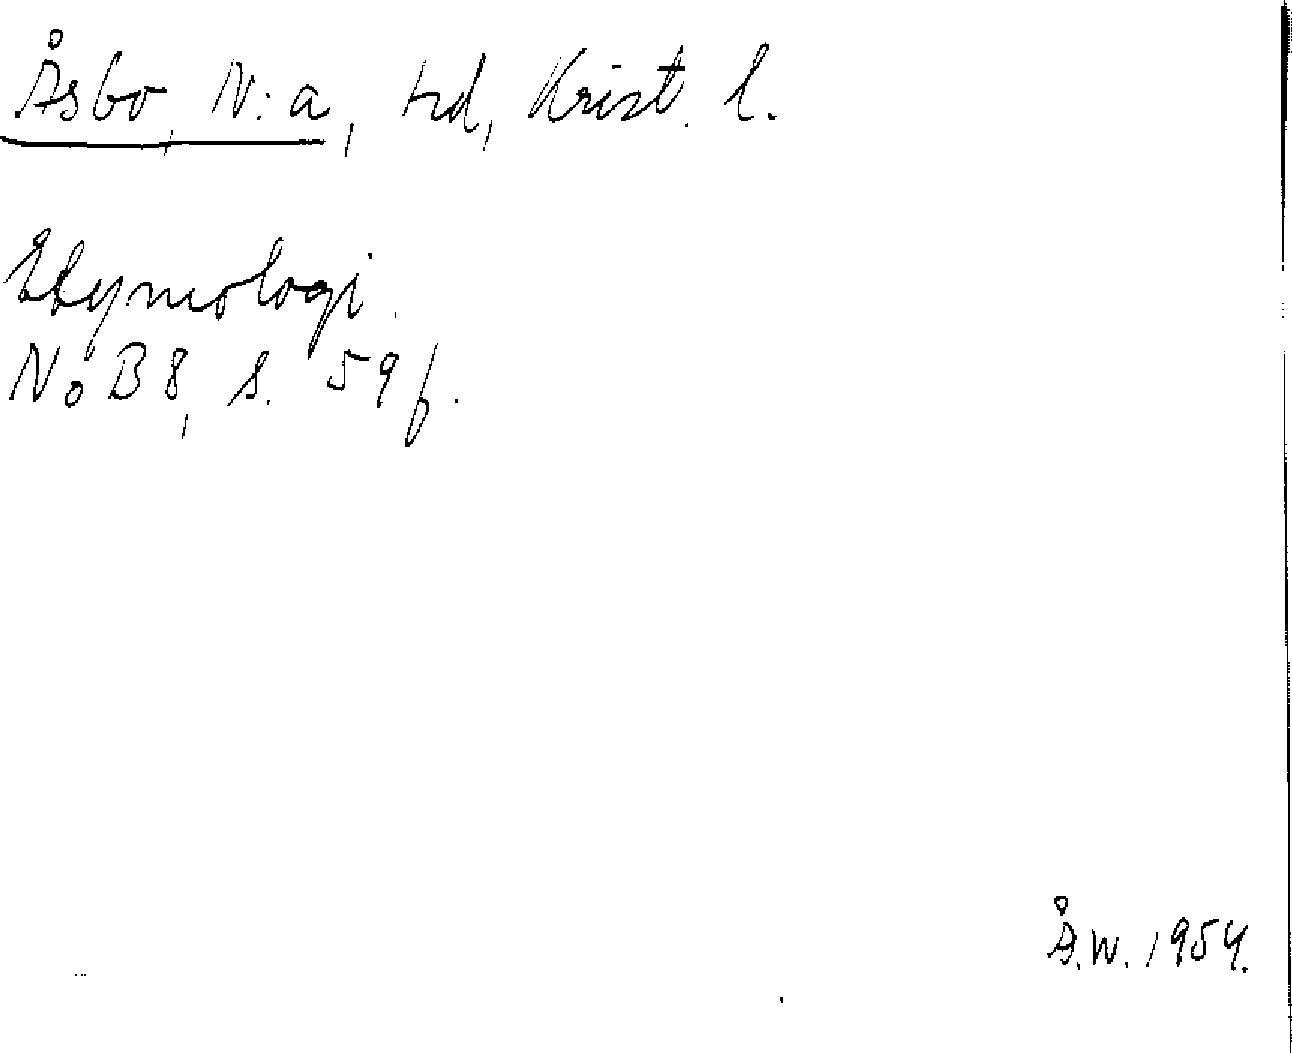 Åsbo, N:a, hd, Krist. l.
Etymologi.
NoB 8, s. 59 f.
Å.W. 1954.